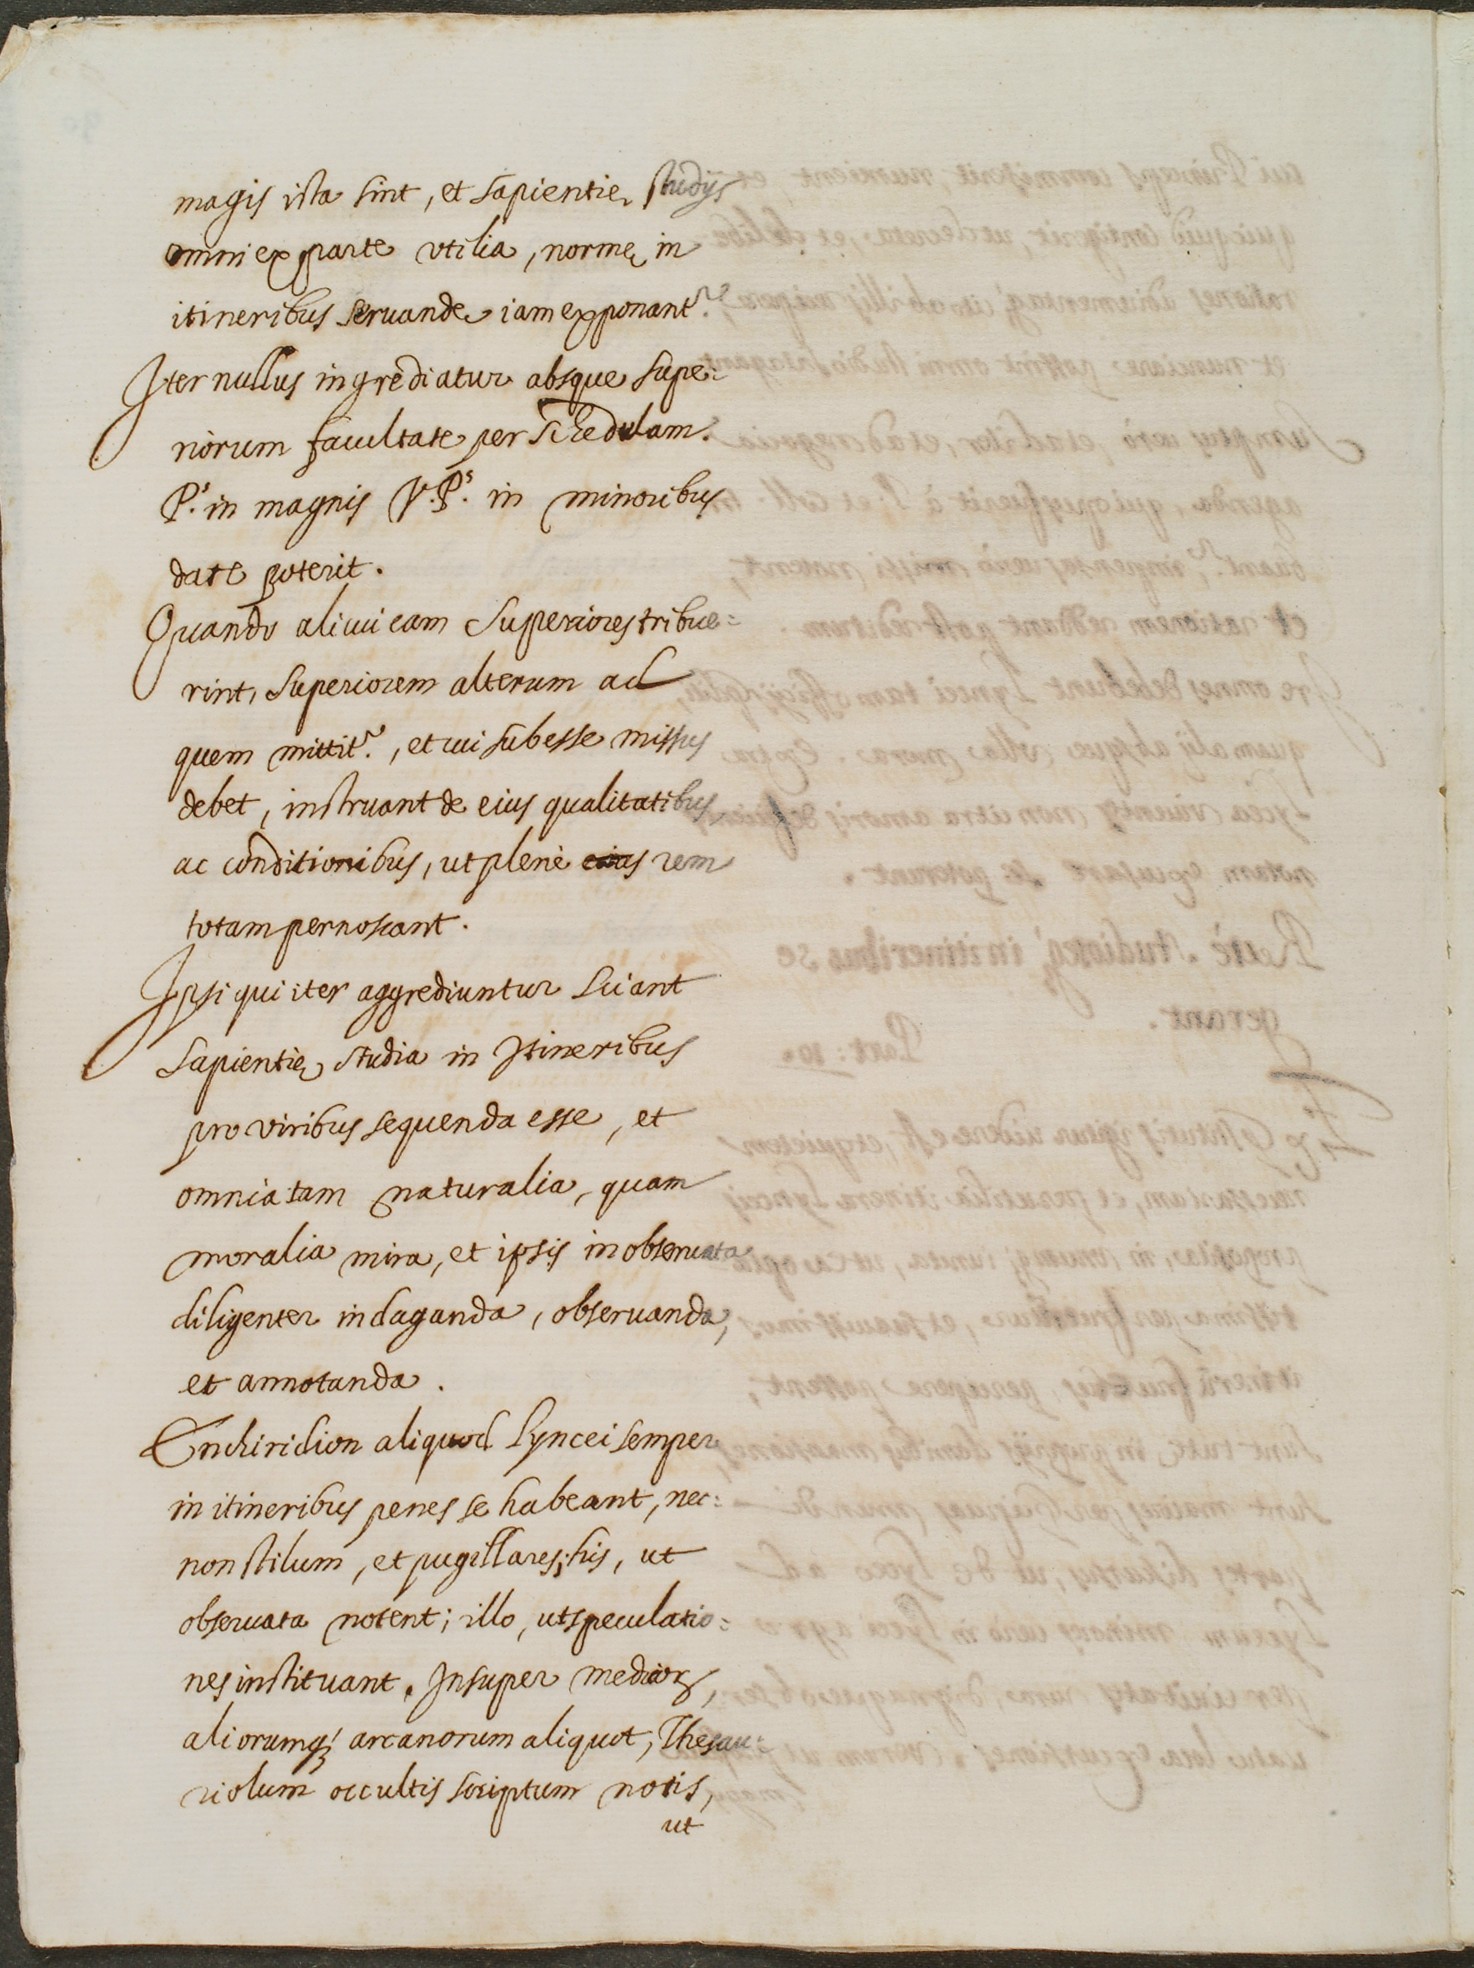 magis ista sint, et sapientię studijs
omni ex parte vtilia, normę in
itineribus seruande iam exponantr.
Iter nullus ingrediatur absque supe:
riorum facultate per schedulam.
P.s in magnis V.P.s in minoribus
date poterit.
Quando alicui eam Superiores tribue=
rint, Superiorem alterum ad
quem mittitr., et cui subesse missus
debet, instruant de eius qualitatibus
ac conditionibus, ut plenè rem
totam pernoscant.
Ipsi qui iter aggrediuntur sciant
sapientię studia in Itineribus
pro viribus sequenda esse, et
omnia tam naturalia, quam
moralia mira, et ipsis inobseruata
diligenter indaganda, obseruanda,
et annotanda.
Enchiridion aliquod Lyncei semper
in itineribus penes se habeant, nec:
non stilum, et pugillares; his, ut
obseruata notent; illo, ut speculatio=
nes instituant. Insuper medicorꝫ,
aliorumqꝫ arcanorum aliquot, Thesau:
riolum occultis scriptum notis,
ut